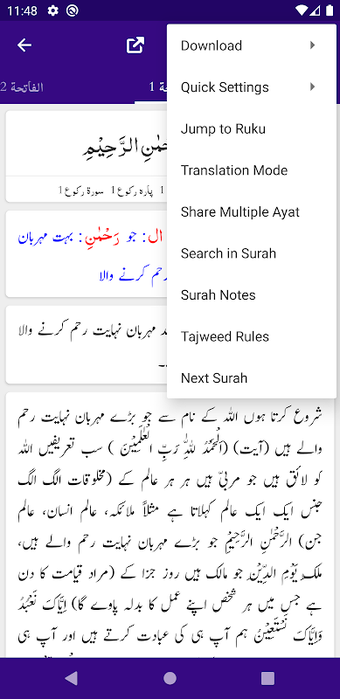 11:48
الفاتحة 2
1
Download
Quick Settings
Jump to Ruku
Translation Mode
Share Multiple Ayat
Search in Surah
Surah Notes
Tajweed Rules
Next Surah
الرَّحِيْمِ
پارہ رکوع 1 سورۃ رکوع 1
ال: جو رَحْمٰنِ: بہت مہربان
رحم کرنے والا
مہربان نہایت رحم کرنے والا
شروع کرتا ہوں اللہ کے نام سے جو بڑے مہربان نہایت رحم
والے ہیں (آیت) (اَلْحَمْدُ لِلّٰهِ رَبِّ الْعٰلَمِيْنَ ) سب تعریفیں اللہ
کو لائق ہیں جو مربیّ ہیں ہر ہر عالم کے (مخلوقات الگ الگ
جنس ایک ایک عالم کہلاتا ہے مثلاً ملائکہ، عالم انسان، عالم
جن) الرَّحْمٰنِ الرَّحِيْمِ جو بڑے مہربان نہایت رحم والے ہیں،
ملك يَوْمِ الدِّيْنِ جو مالک ہیں روز جزا کے (مراد قیامت کا دن
ہے جس میں ہر شخص اپنے عمل کا بدلہ پاوے گا) اِيَّاكَ نَعْبُدُ
وَاِيَّاكَ نَسْتَعِيْنُ ہم آپ ہی کی عبادت کرتے ہیں اور آپ ہی